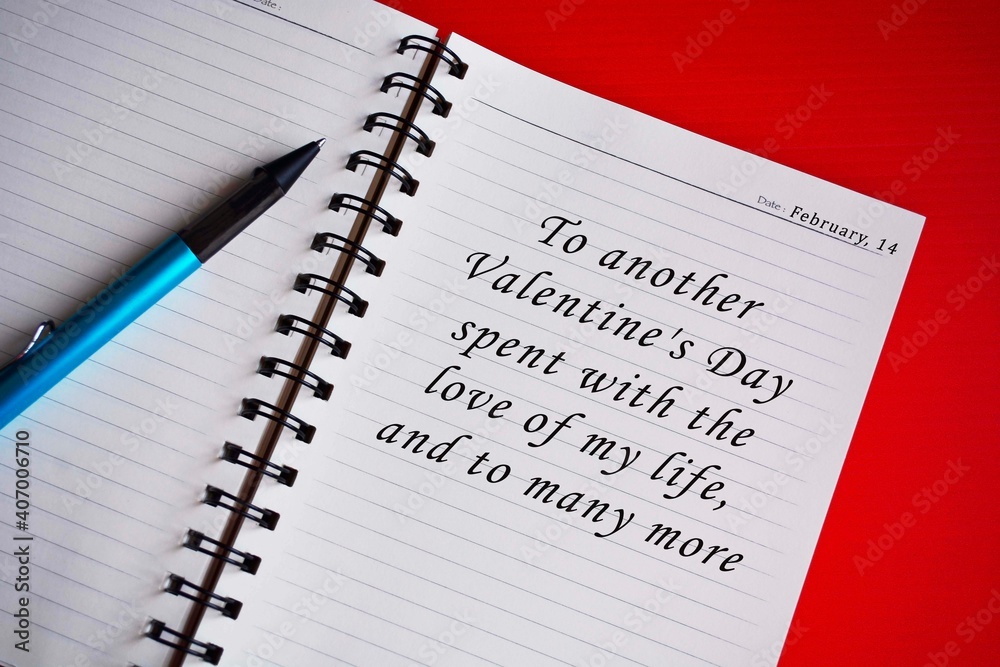 Date :
Date : February, 14
To another
Valentine's Day
spent with the
love of my life,
and to many more
Adobe Stock | #407006710